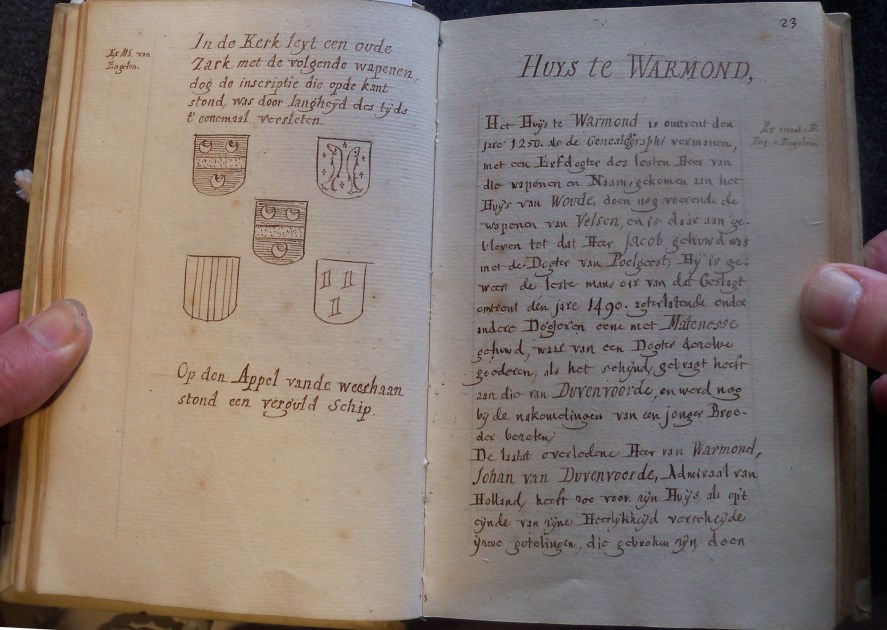 Ex Ms. van
Engelen.
In de Kerk leyt een oude
Zark met de volgende wapenen,
dog de inscriptie die opde kant
stond, was door langheyd des tyds
t' eenemaal versleten.
Op den Appel vande weerhaan
stond een verguld Schip.
23
HUYS te WARMOND,
Het Huys te Warmond is omtrent den
jare 1250. als de Genealographi vermanen,
met een Erfdogter des lesten Heer van
die wapenen en Naam, gekomen aan het
Huys van Woude, doen nog voerende de
wapenen van Velsen, en is daar aan ge-
bleven tot dat Heer Jacob gehuwd was
met de Dogter van Poelgeest; Hy is ge-
weest de leste mans oir van dat Geslagt
omtrent den jare 1490. agterlatende onder
andere Dogteren eene met Matenesse
gehuwd, waar van een Dogter dezelve
goederen, als het schynd, gebragt heeft
aan die van Duvenvoorde, en werd nog
by de nakomelingen van een jonger Broe-
der bezeten;
De laatst overledene Heer van Warmond,
Johan van Duvenvoorde, Admiraal van
Holland, heeft zoo voor zyn Huys, als op't
eynde van zyne Heerlykheyd verscheyde
yzere gotelingen, die gebroken zyn, doen